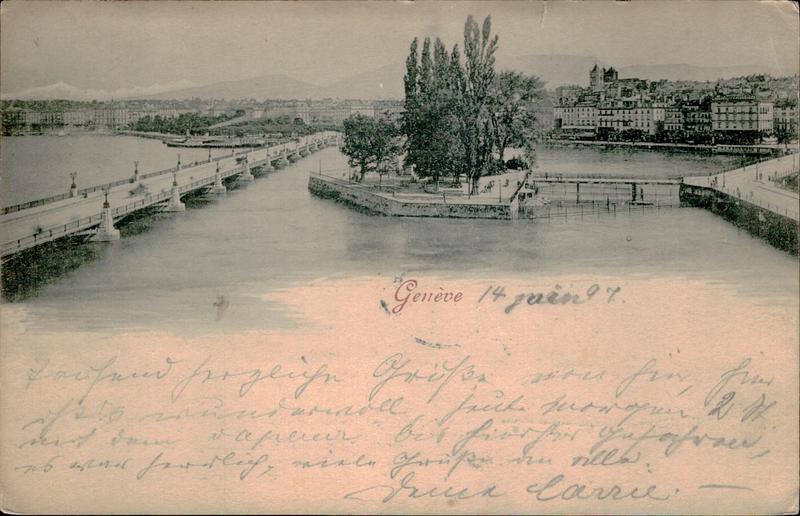 Genève 14 juin 97.
Tausend herzliche Grüße von hier, hier
ist's wundervoll heute morgen 2 St
mit dem Dampfer bis hierher gefahren,
es war herrlich, viele Grüße an alle.
Deine Carrie.